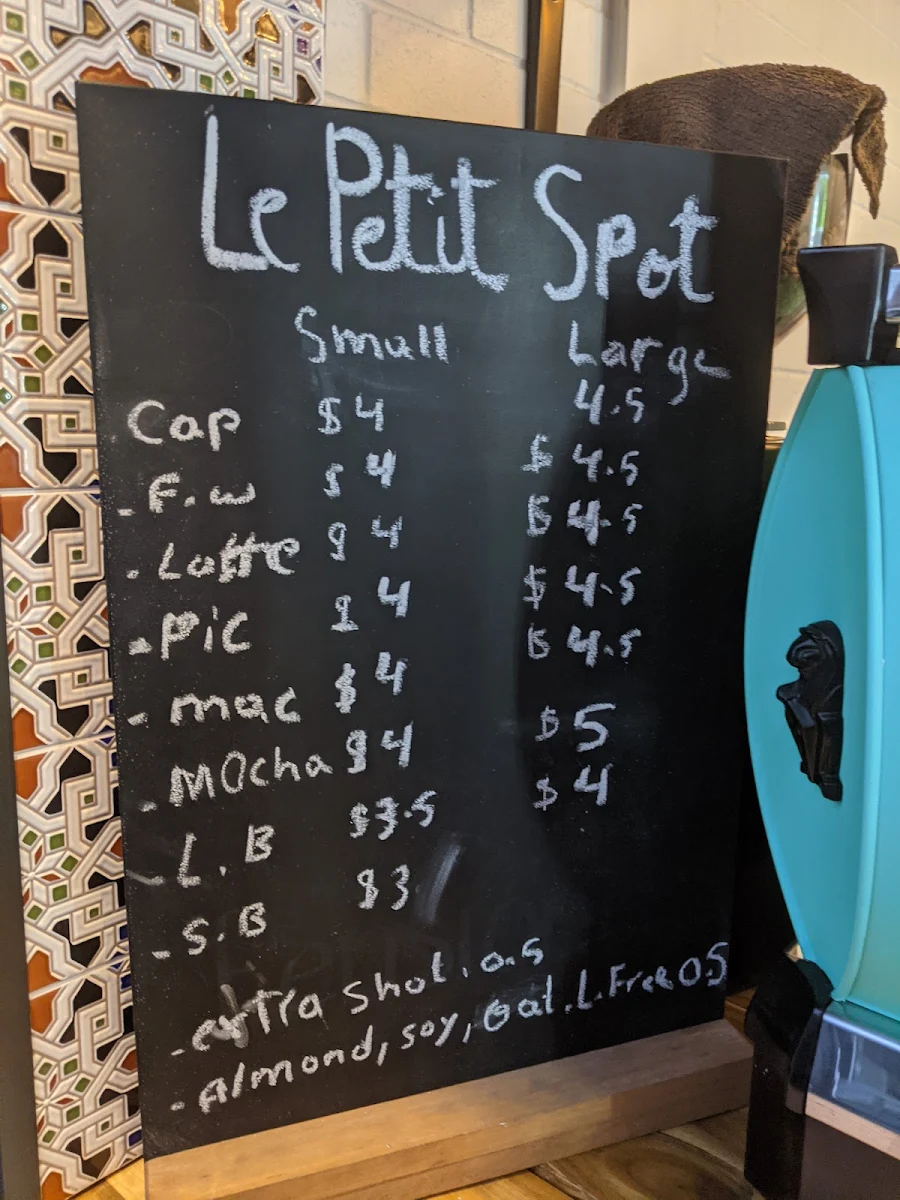 Le Petit Spot
Small Large
Cap $4 4.5
- F.w $4 $4.5
- Latte $4 $4.5
- Pic $4 $4.5
- mac $4 $4.5
- MOcha $4 $5
- L.B $3.5 $4
- S.B $3
- extra shot. 0.5
- Almond, soy, oat. L.Free 0.5